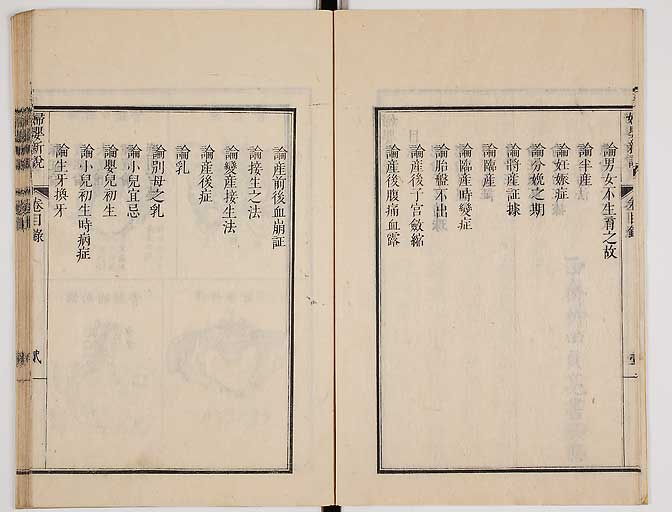 論男女不生育之故
論半產
論妊娠症
論分娩之期
論將產証據
論臨產
論臨產時變症
論胎盤不出
論產後子宮斂縮
論產後腹痛血露
論產前後血崩証
論接生之法
論變產接生法
論產後症
論乳
論別母之乳
論小兒宜忌
論嬰兒初生
論小兒初生時病症
論生牙換牙
婦嬰新說
卷目錄
貳